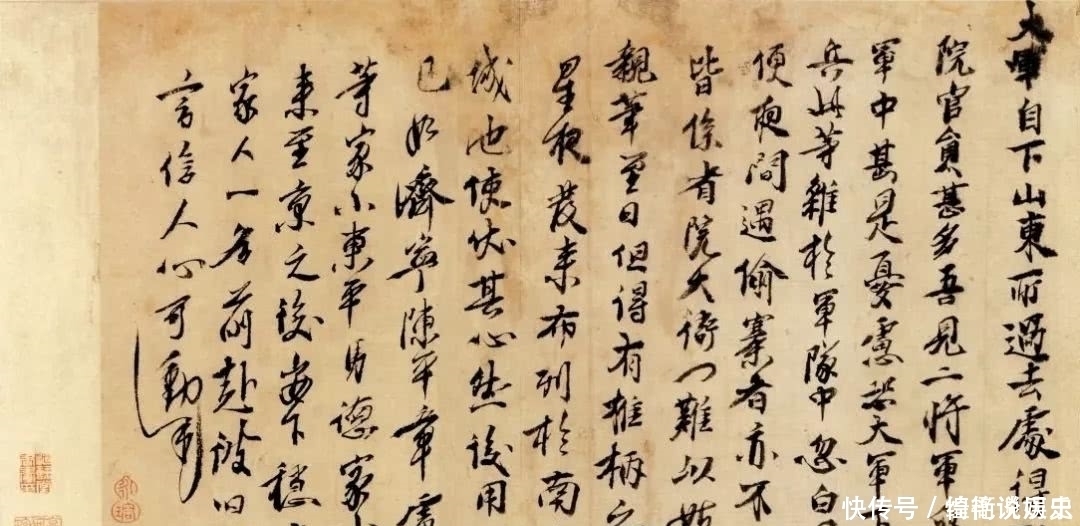 大軍自下山東所過去處得
院官員甚多吾見二將軍
軍中甚是憂慮恐大軍
兵此等雜於軍隊中忽白日
便夜間遇偷寨者亦不
皆係省院大衙門難以姑
親筆至日但得有椎柄之
星夜發來布列於南
城也使伏其心然後用
已如濟寧陳平章盧
等家小東平馬德家
來至京之後安下穩
家人一名前赴彼舊
言信人心可動
快传号/